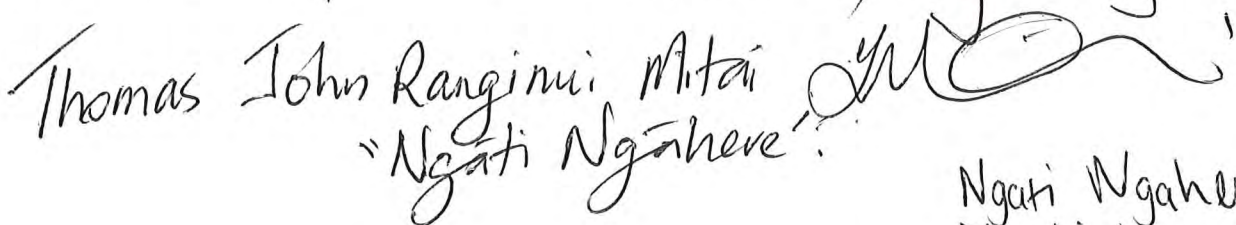 Thomas John Ranginui Mitai
"Ngāti Ngāhere".
Ngati Ngahe